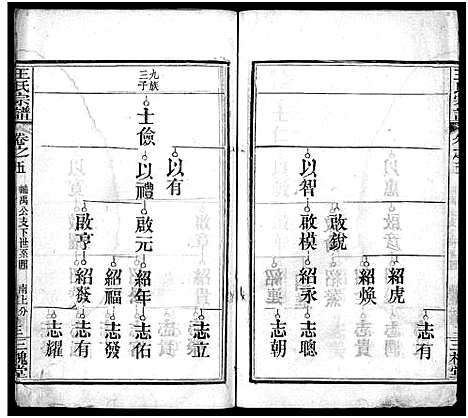 以智
啟銳
啟模
紹虎
紹煥
紹永
志有
志聰
志朝
九族
三子
士儉
以有
以禮
啟元
啟亨
紹年
紹福
紹發
志立
志佑
志發
志有
志耀
王氏宗譜
卷之五
三槐堂